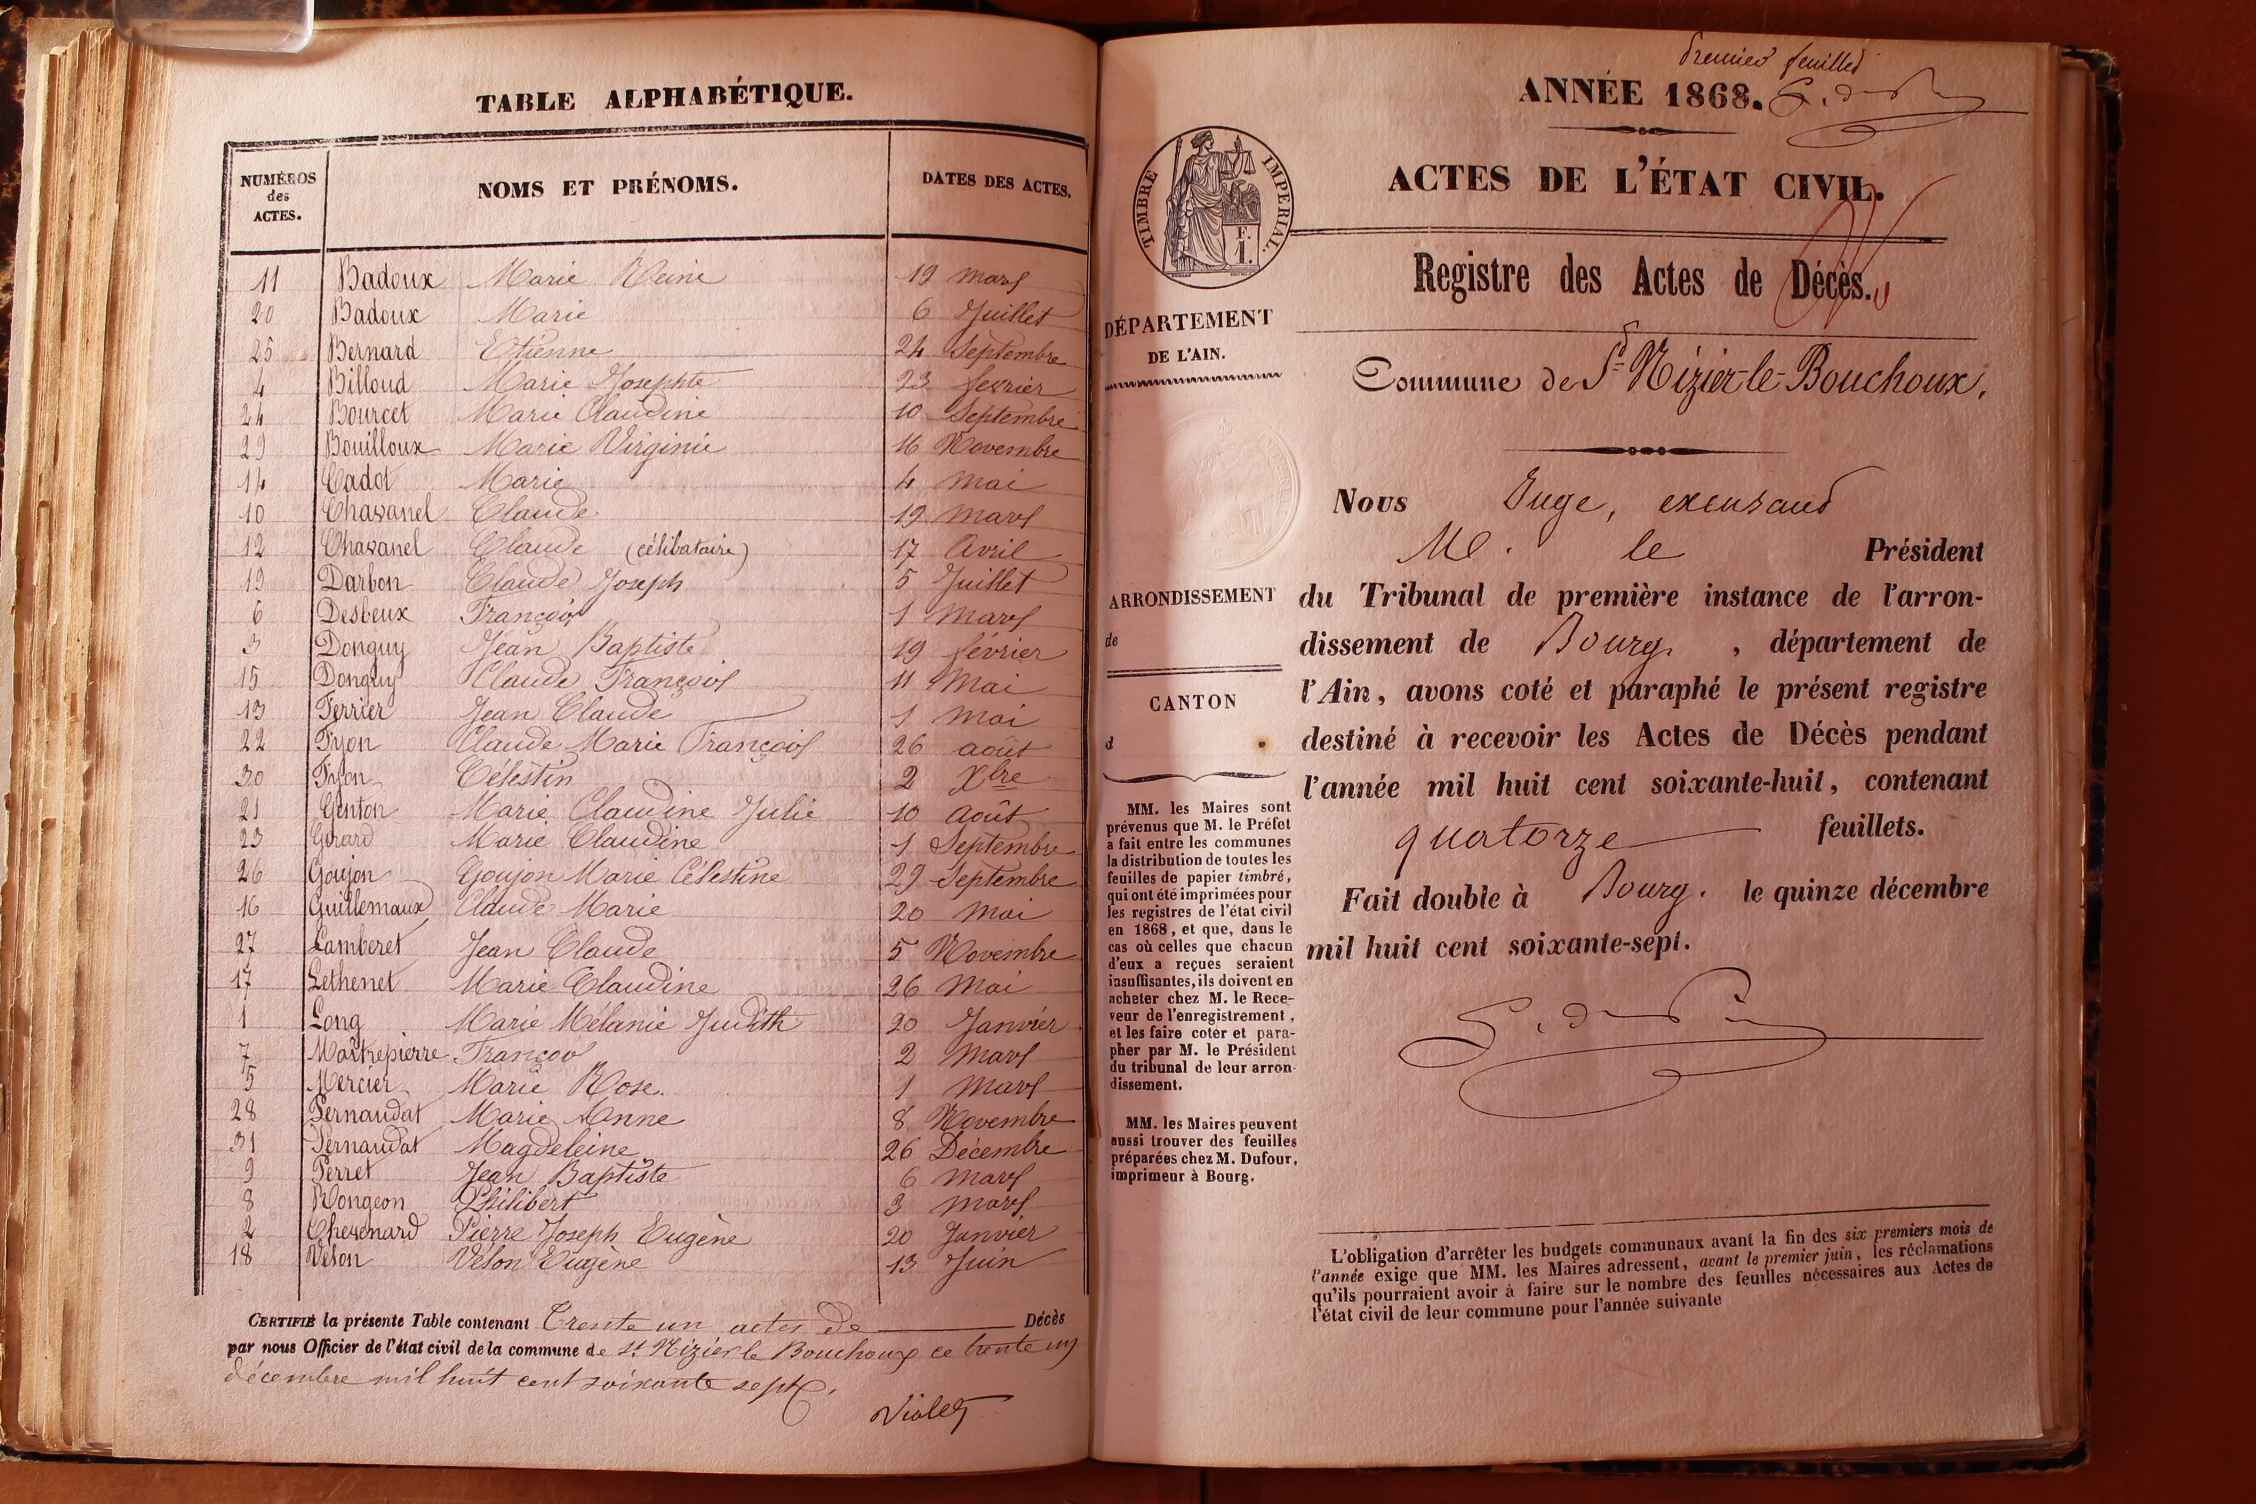 TABLE ALPHABÉTIQUE.
NUMÉROS des ACTES.
NOMS ET PRÉNOMS.
DATES DES ACTES.
11 Badoux Marie Reine 19 mars
20 Badoux Marie 6 Juillet
25 Bernard Etienne 24 Septembre
4 Billoud Marie Josephte 23 fevrier
24 Bourcet Marie Claudine 10 Septembre
29 Bouilloux Marie Virginie 16 Novembre
14 Cadot Marie 4 Mai
10 Chavanel Claude 19 mars
12 Chavanel Claude (célibataire) 17 Avril
19 Darbon Claude Joseph 5 Juillet
6 Desbeux François 1 Mars
3 Donguy Jean Baptiste 19 février
15 Donguy Claude François 11 Mai
13 Ferrier Jean Claude 1 Mai
22 Fyon Claude Marie François 26 août
30 Fyon Célestin 2 Xbre
21 Genton Marie Claudine Julie 10 Août
23 Gerard Marie Claudine 1 Septembre
26 Goujon Goujon Marie Célestine 29 Septembre
16 Guillemaux Claude Marie 20 Mai
27 Lamberet Jean Claude 5 Novembre
17 Lethenet Marie Claudine 26 Mai
1 Long Marie Mélanie Judith 20 Janvier
7 Maitrepierre François 2 Mars
5 Mercier Marie Rose 1 Mars
28 Pernaudat Marie Anne 8 Novembre
31 Pernaudat Magdeleine 26 Décembre
9 Perret Jean Baptiste 6 Mars
8 Rongeon Philibert 3 Mars
2 Thevenard Pierre Joseph Eugène 20 Janvier
18 Velon Velon Eugène 13 Juin
CERTIFIÉ la présente Table contenant Trente un actes de Décès
par nous Officier de l'état civil de la commune de St Nizier le Bouchoux ce trente un
décembre mil huit cent soixante sept.
Violet
Premier feuillet
ANNÉE 1868.
ACTES DE L'ÉTAT CIVIL.
TIMBRE IMPERIAL.
F.
1.
Registre des Actes de Décès.
DÉPARTEMENT
DE L'AIN.
Commune de St Nizier-le-Bouchoux.
Nous Juge, excusant
M. le Président
ARRONDISSEMENT
de
CANTON
d
du Tribunal de première instance de l'arron-
dissement de Bourg, département de
l'Ain, avons coté et paraphé le présent registre
destiné à recevoir les Actes de Décès pendant
l'année mil huit cent soixante-huit, contenant
quatorze feuillets.
Fait double à Bourg. le quinze décembre
mil huit cent soixante-sept.
MM. les Maires sont
prévenus que M. le Préfet
a fait entre les communes
la distribution de toutes les
feuilles de papier timbré,
qui ont été imprimées pour
les registres de l'état civil
en 1868, et que, dans le
cas où celles que chacun
d'eux a reçues seraient
insuffisantes, ils doivent en
acheter chez M. le Rece-
veur de l'enregistrement,
et les faire coter et para-
pher par M. le Président
du tribunal de leur arron-
dissement.
MM. les Maires peuvent
aussi trouver des feuilles
préparées chez M. Dufour,
imprimeur à Bourg.
L'obligation d'arrêter les budgets communaux avant la fin des six premiers mois de
l'année exige que MM. les Maires adressent, avant le premier juin, les réclamations
qu'ils pourraient avoir à faire sur le nombre des feuilles nécessaires aux Actes de
l'état civil de leur commune pour l'année suivante